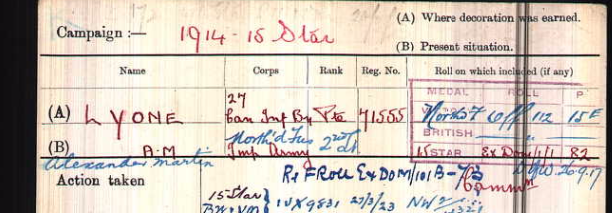 (A) Where decoration was earned.
Campaign :— 1914-15 Star
(B) Present situation.
Name Corps Rank Reg. No. Roll on which included (if any)
MEDAL ROLL P
27
(A) LYONE Can Inf Bn Pte 71555 North'd F Off 112 15E
BRITISH " "
(B) A.M North'd Fus 2nd Lt
Imp Army 15 STAR Ex Dom/1/1 82
Alexander Martin NW 26.9.17
Action taken Re F Roll Ex DOM/101B-73
15 Star
IVX9831 27/3/23 NW2